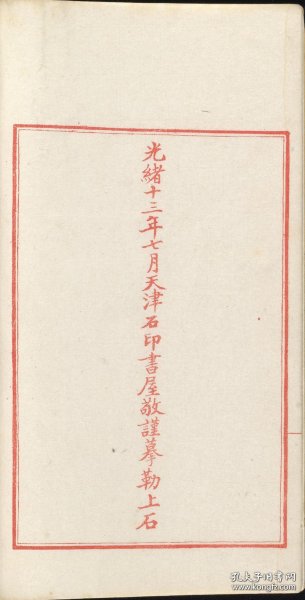 光緒十三年七月天津石印書屋敬謹摹勒上石
孔夫子旧书网
www.kongfz.com